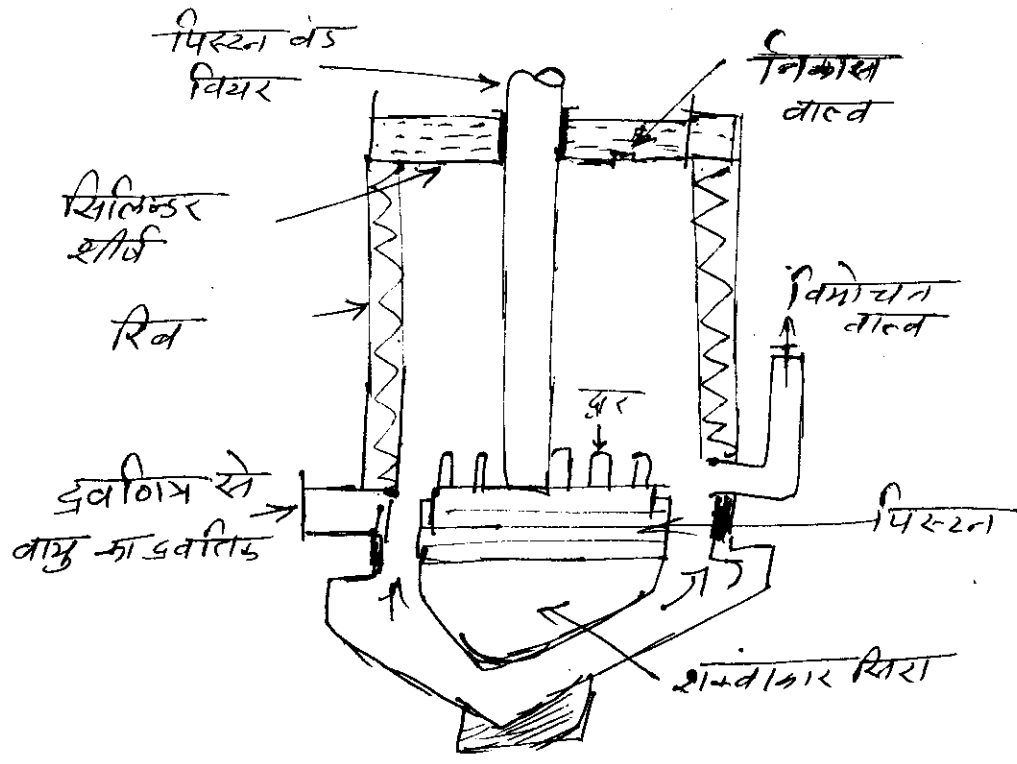 पिस्टन वंड
वियर
निकास
वाल्व
सिलिन्डर
शीर्ष
रिब
विमोचन
वाल्व
द्वार
से
वायु का
पिस्टन
शंक्वाकार सिरा